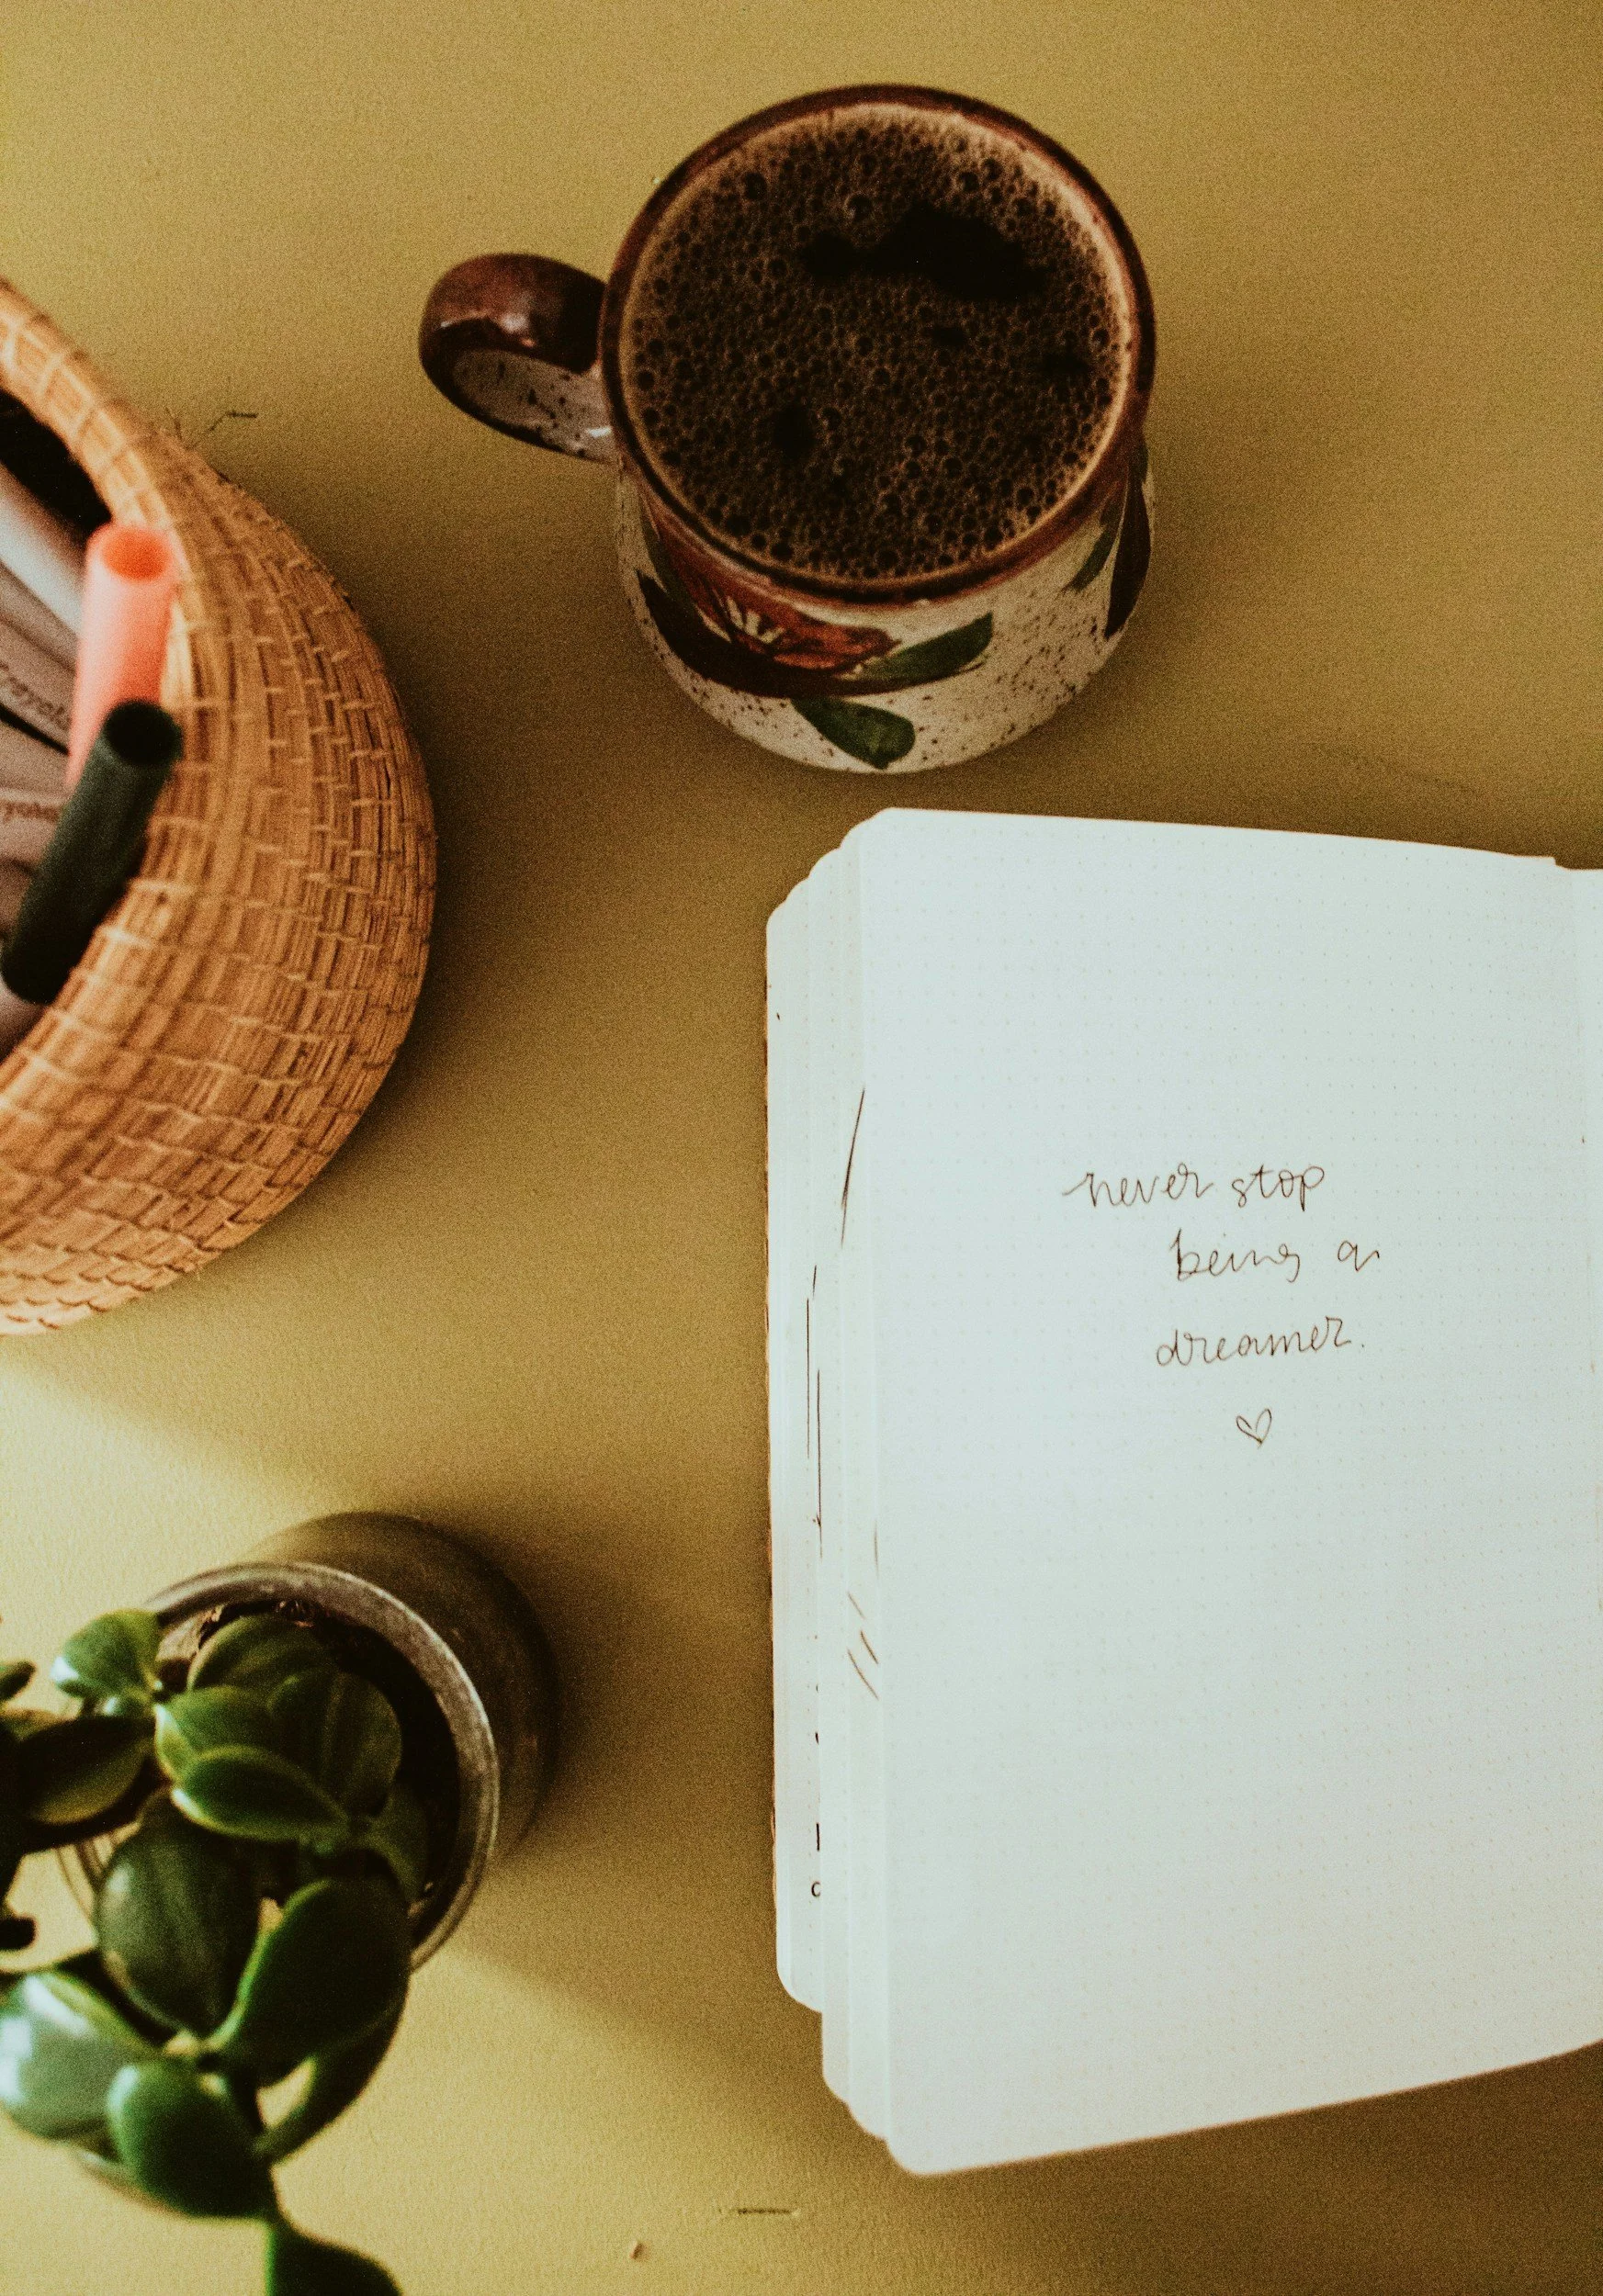 never stop
being a
dreamer.